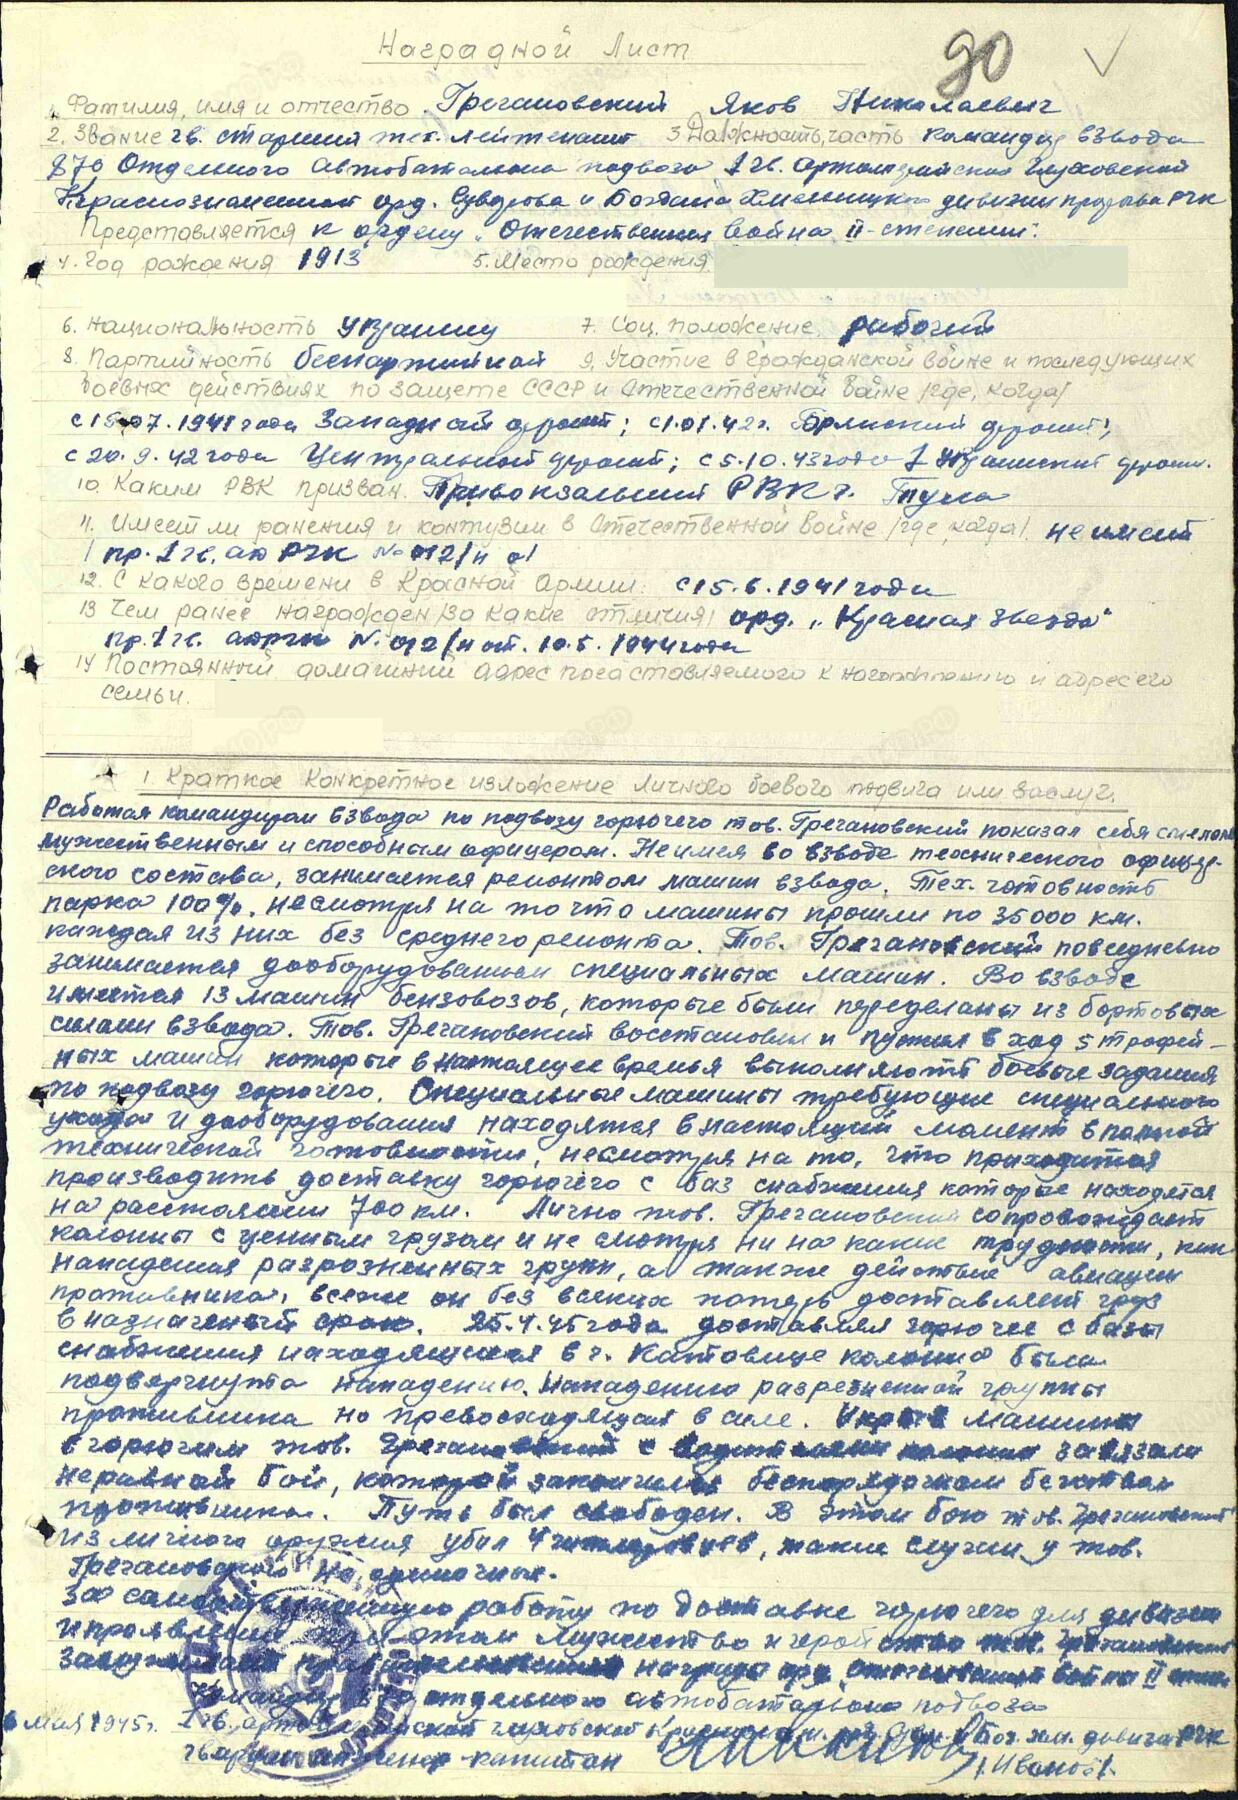 Наградной Лист
90
1. Фамилия, имя и отчество Гречановский Яков Николаевич
2. Звание гв. старший тех. лейтенант 3. Должность, часть командир взвода
870 Отдельного автобатальона подвоза 1 гв. артиллерийской Глуховской
Краснознаменной орд. Суворова и Богдана Хмельницкого дивизии прорыва РГК
Представляется к ордену "Отечественная война II-степени".
4. Год рождения 1913 5. Место рождения
6. Национальность украинец 7. Соц. положение рабочий
8. Партийность беспартийный 9. Участие в гражданской войне и последующих
боевых действиях по защете СССР и Отечественной войне /где, когда/
с 15.07.1941 года Западный фронт; с 1.01.42 г. Брянский фронт;
с 20.9.42 года Центральный фронт; с 5.10.43 года 1 Украинский фронт.
10. Каким РВК призван. Привокзальный РВК г. Тула
11. Имеет ли ранения и контузии в Отечественной войне /где, когда/ не имеет
/ пр. 1 гв. ад РГК № 012/н
12. С какого времени в Красной Армии с 15.6.1941 года
13 Чем ранее награжден /за какие отличия/ орд. "Красная звезда"
пр. 1 гв. № 012/н от 10.5.1944 года
14 Постоянный домашний адрес представляемого к награждению и адрес его
семьи.
1. Краткое конкретное изложение личного боевого подвига или заслуг.
Работая командиром взвода по подвозу горючего тов. Гречановский показал себя смелым
мужественным и способным офицером. Не имея во взводе технического офицер-
ского состава, занимается ремонтом машин взвода. Тех. готовность
парка 100%, несмотря на то что машины прошли по 35000 км.
каждая из них без среднего ремонта. Тов. Гречановский повседневно
занимается дооборудованием специальных машин. Во взводе
имеется 13 машин бензовозов, которые были переделаны из бортовых
силами взвода. Тов. Гречановский восстановил и пустил в ход 5 трофей-
ных машин которые в настоящее время выполняют боевые задания
по подвозу горючего. Специальные машины требующие специального
ухода и дооборудования находятся в настоящий момент в полной
технической готовности, несмотря на то, что приходится
производить доставку горючего с баз снабжения которые находятся
на расстоянии 700 км. Лично тов. Гречановский сопровождает
колонны с ценным грузом и не смотря ни на какие трудности, как
нападения разрозненных групп, а также действие авиации
противника, всеже он без всяких потерь доставляет груз
в назначеный срок. 25.4.45 года доставляя горючее с базы
снабжения находящиеся в г. Катовице колонна была
подвергнута нападению. Нападению разрозненной группы
противника но превосходящая в силе. Укрыв машины
с горючим тов. Гречановский с водителями колонны завязали
неравный бой, который закончился беспорядочным бегством
противника. Путь был свободен. В этом бою тов. Гречановский
из личного оружия убил 4 гитлеровцев, такие случаи у тов.
Гречановского не единочные.
За самоотверженную работу по доставке горючего для дивизии
и проявленные при этом мужество и геройство тов. Гречановский
награды орд. Отечественной войны II степени
Командир 870 отдельного автобатальона подвоза
6 мая 1945 г. 1 гв. артиллерийской глуховской Краснознам. орд. Сув. и Бог. Хм. дивизии РГК
гвардии инженер-капитан /Иванов/.